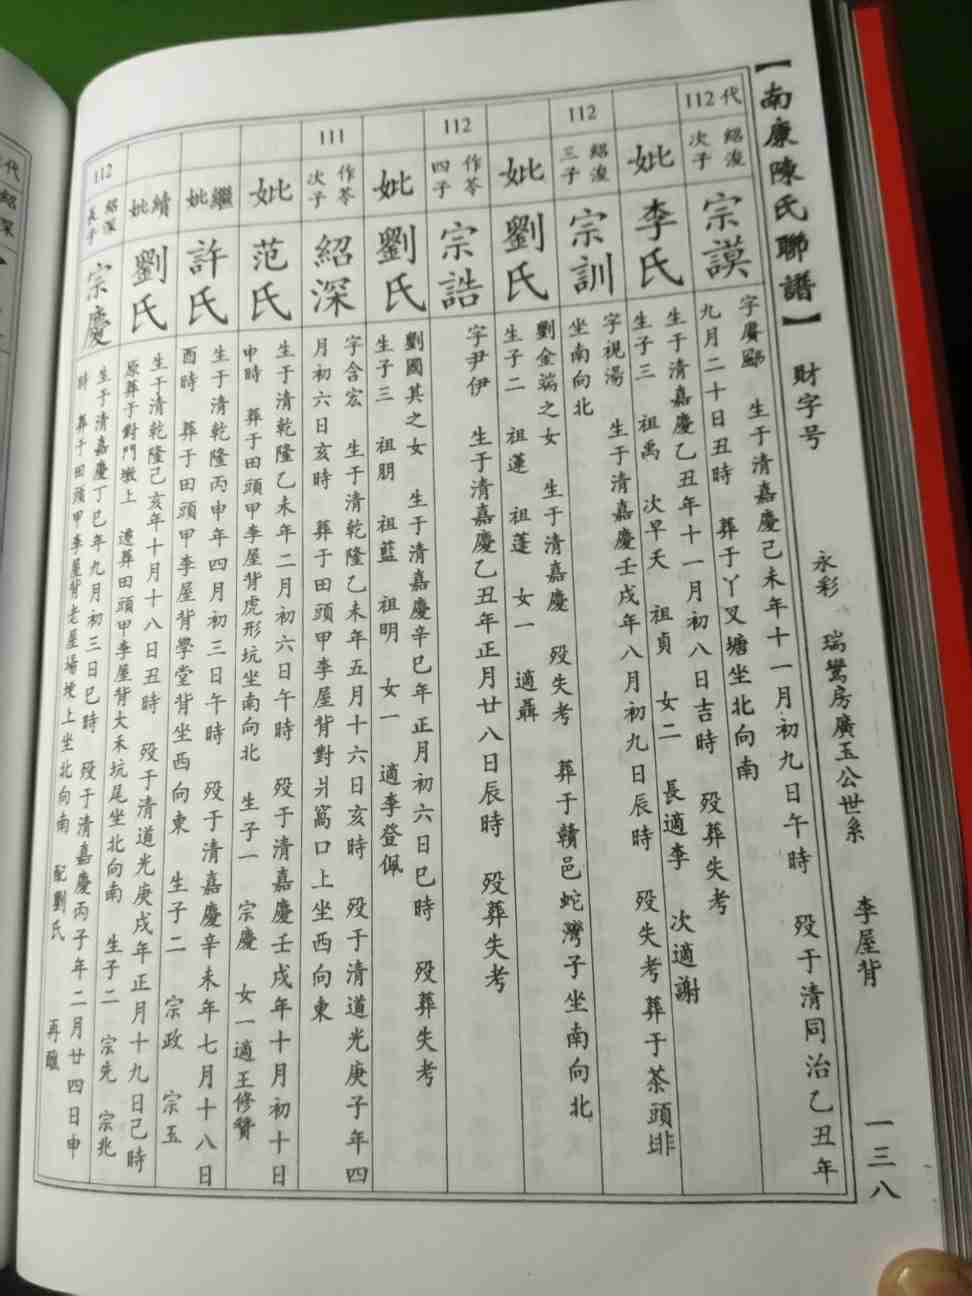 【南康陳氏聯譜】
財字号
永彩
瑞鸞房廣玉公世系
李屋背
一三八
112代
紹浚
次子
宗謨
字賡颺 生于清嘉慶己未年十一月初九日午時 殁于清同治乙丑年
九月二十日丑時 葬于丫叉塘坐北向南
妣
李氏
生于清嘉慶乙丑年十一月初八日吉時 殁葬失考
生子三 祖禹 次早夭 祖貞 女二 長適李 次適謝
112
紹浚
三子
宗訓
字視湯 生于清嘉慶壬戌年八月初九日辰時 殁失考葬于茶頭
坐南向北
妣
劉氏
劉金端之女 生于清嘉慶 殁失考 葬于贛邑蛇灣子坐南向北
生子二 祖蓮 祖蓬 女一 適聶
112
作苓
四子
宗誥
字尹伊 生于清嘉慶乙丑年正月廿八日辰時 殁葬失考
妣
劉氏
劉國其之女 生于清嘉慶辛巳年正月初六日巳時 殁葬失考
生子三 祖朋 祖藍 祖明 女一 適李登佩
111
作苓
次子
紹深
字含宏 生于清乾隆乙未年五月十六日亥時 殁于清道光庚子年四
月初六日亥時 葬于田頭甲李屋背對爿窩口上坐西向東
妣
范氏
生于清乾隆乙未年二月初六日午時 殁于清嘉慶壬戌年十月初十日
申時 葬于田頭甲李屋背虎形坑坐南向北 生子一 宗慶 女一適王修贊
繼妣
許氏
生于清乾隆丙申年四月初三日午時 殁于清嘉慶辛未年七月十八日
酉時 葬于田頭甲李屋背學堂背坐西向東 生子二 宗政 宗玉
續妣
劉氏
生于清乾隆己亥年十月十八日丑時 殁于清道光庚戌年正月十九日己時
原葬于對門墩上 遷葬田頭甲李屋背大禾坑尾坐北向南 生子二 宗先 宗兆
112
紹深
長子
宗慶
生于清嘉慶丁巳年九月初三日巳時 殁于清嘉慶丙子年二月廿四日申
時 葬于田頭甲李屋背老屋場埂上坐北向南 配劉氏 再醮